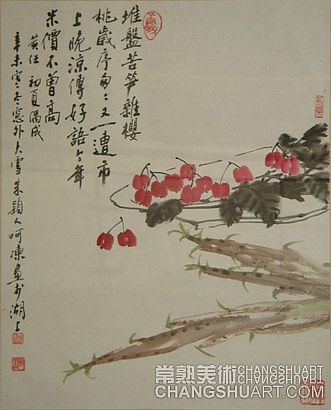 堆盤苦笋雜櫻
桃歲序匆匆又一遭市
上晚涼傳好語今年
米價不曾高
黃任初夏偶成
辛未寒冬窓外大雪朱穎人呵凍畫於湖上
常熟美術CHANGSHUART
CHANGSHUART.COM